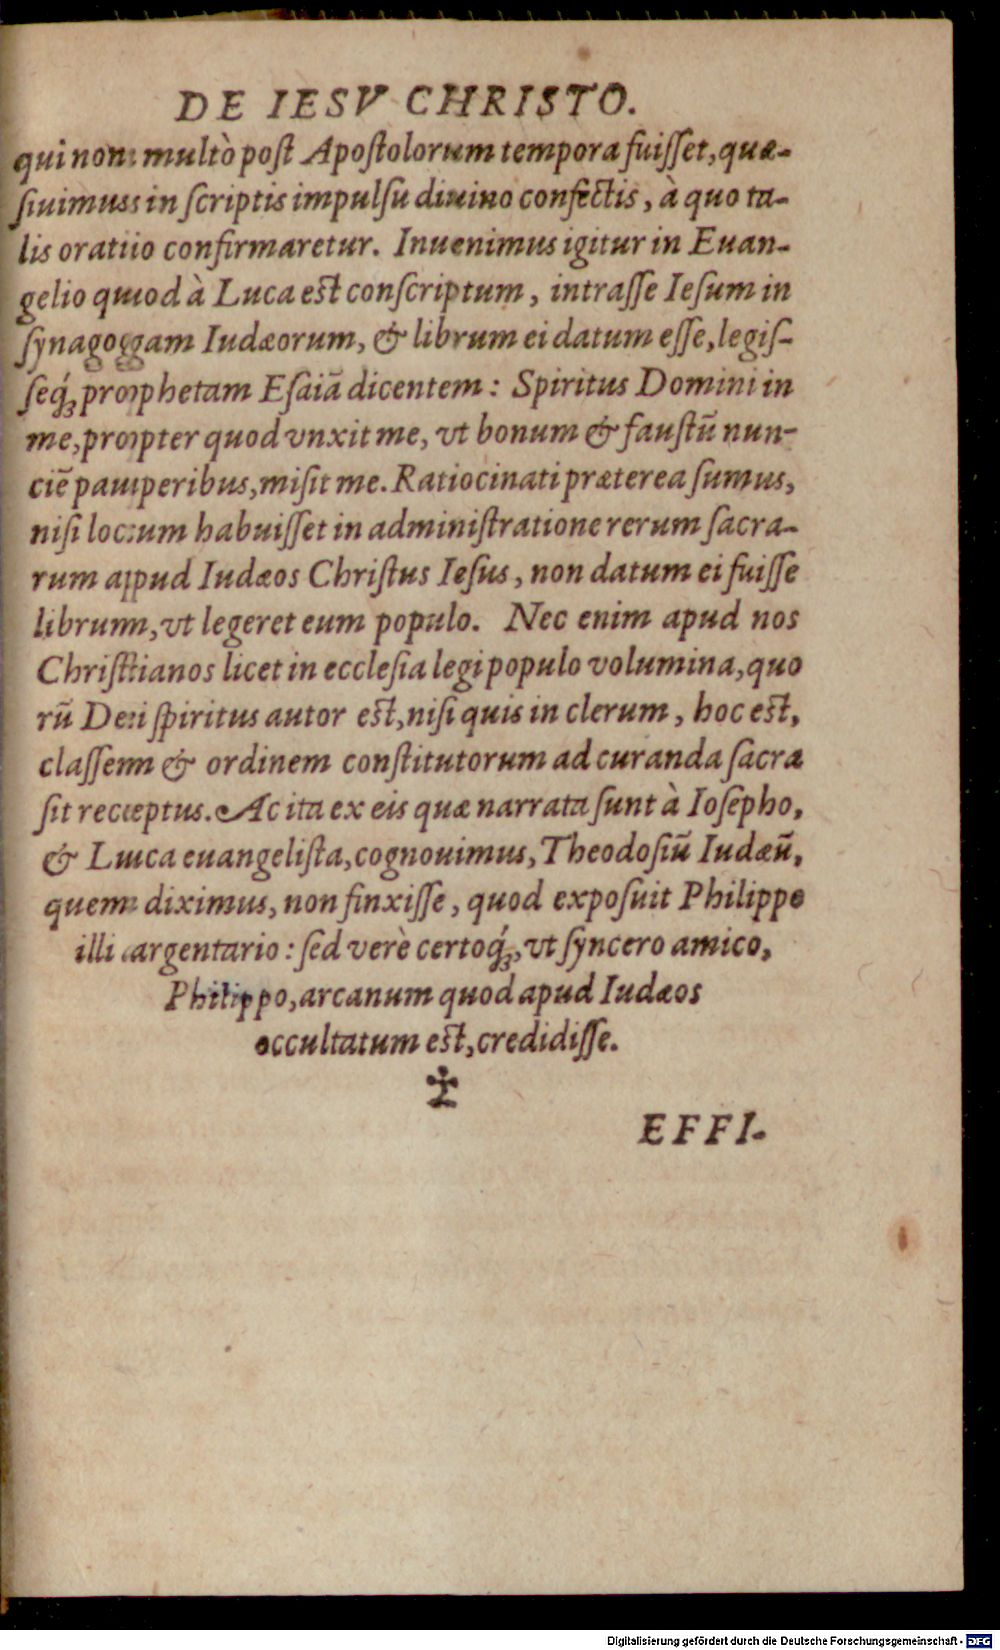 DE IESV CHRISTO.
qui non multò post Apostolorum tempora fuisset, quæ-
siuimus in scriptis impulsu diuino confectis, à quo ta-
lis oratio confirmaretur. Inuenimus igitur in Euan-
gelio quod à Luca est conscriptum, intrasse Iesum in
synagogam Iudæorum, & librum ei datum esse, legis-
seq́; prophetam Esaiã dicentem: Spiritus Domini in
me, propter quod vnxit me, vt bonum & faustũ nun-
ciẽ pauperibus, misit me. Ratiocinati præterea sumus,
nisi locum habuisset in administratione rerum sacra-
rum apud Iudæos Christus Iesus, non datum ei fuisse
librum, vt legeret eum populo. Nec enim apud nos
Christianos licet in ecclesia legi populo volumina, quo
rũ Dei spiritus autor est, nisi quis in clerum, hoc est,
classem & ordinem constitutorum ad curanda sacra
sit receptus. Ac ita ex eis quæ narrata sunt à Iosepho,
& Luca euangelista, cognouimus, Theodosiũ Iudæũ,
quem diximus, non finxisse, quod exposuit Philippo
illi argentario: sed verè certoq́;, vt syncero amico,
Philippo, arcanum quod apud Iudæos
occultatum est, credidisse.
EFFI-
Digitalisierung gefördert durch die Deutsche Forschungsgemeinschaft - DFG